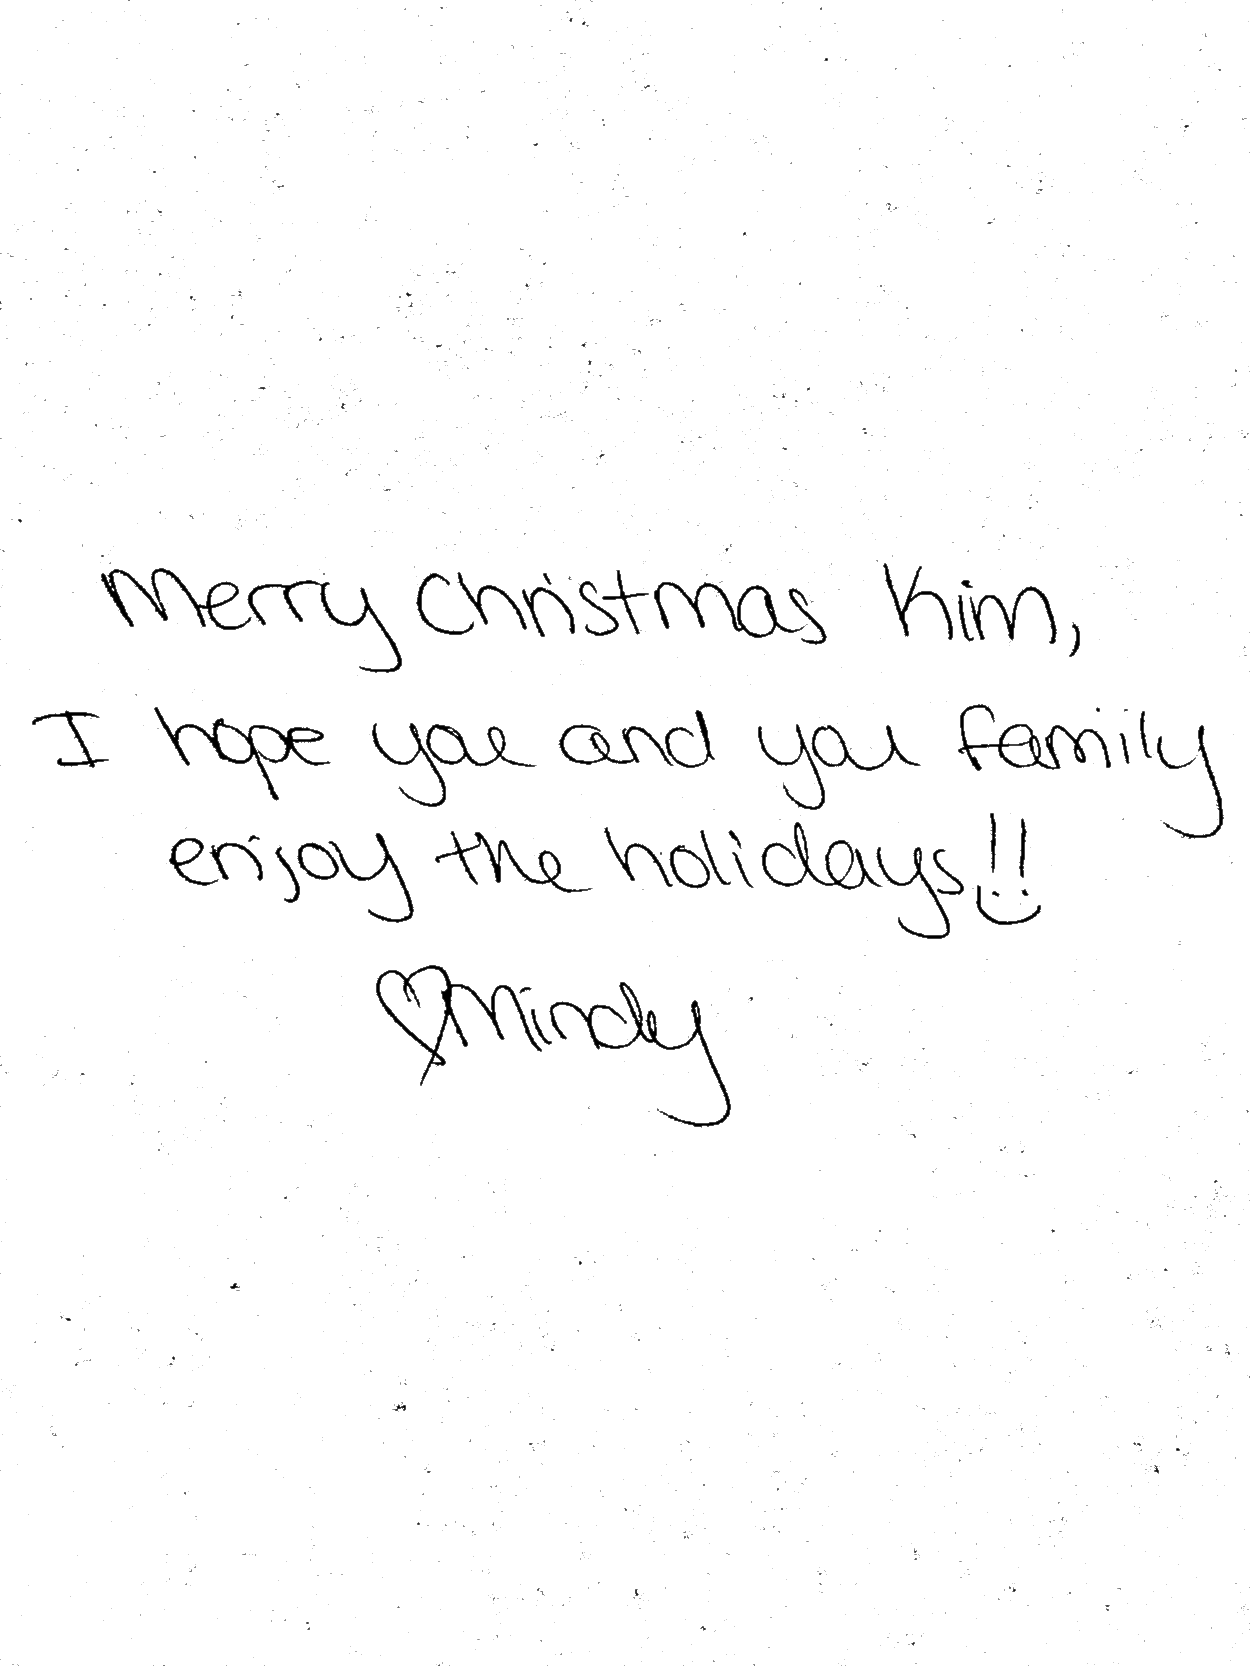 Merry Christmas Kim,
I hope you and you family
enjoy the holidays!!
♡Mindy